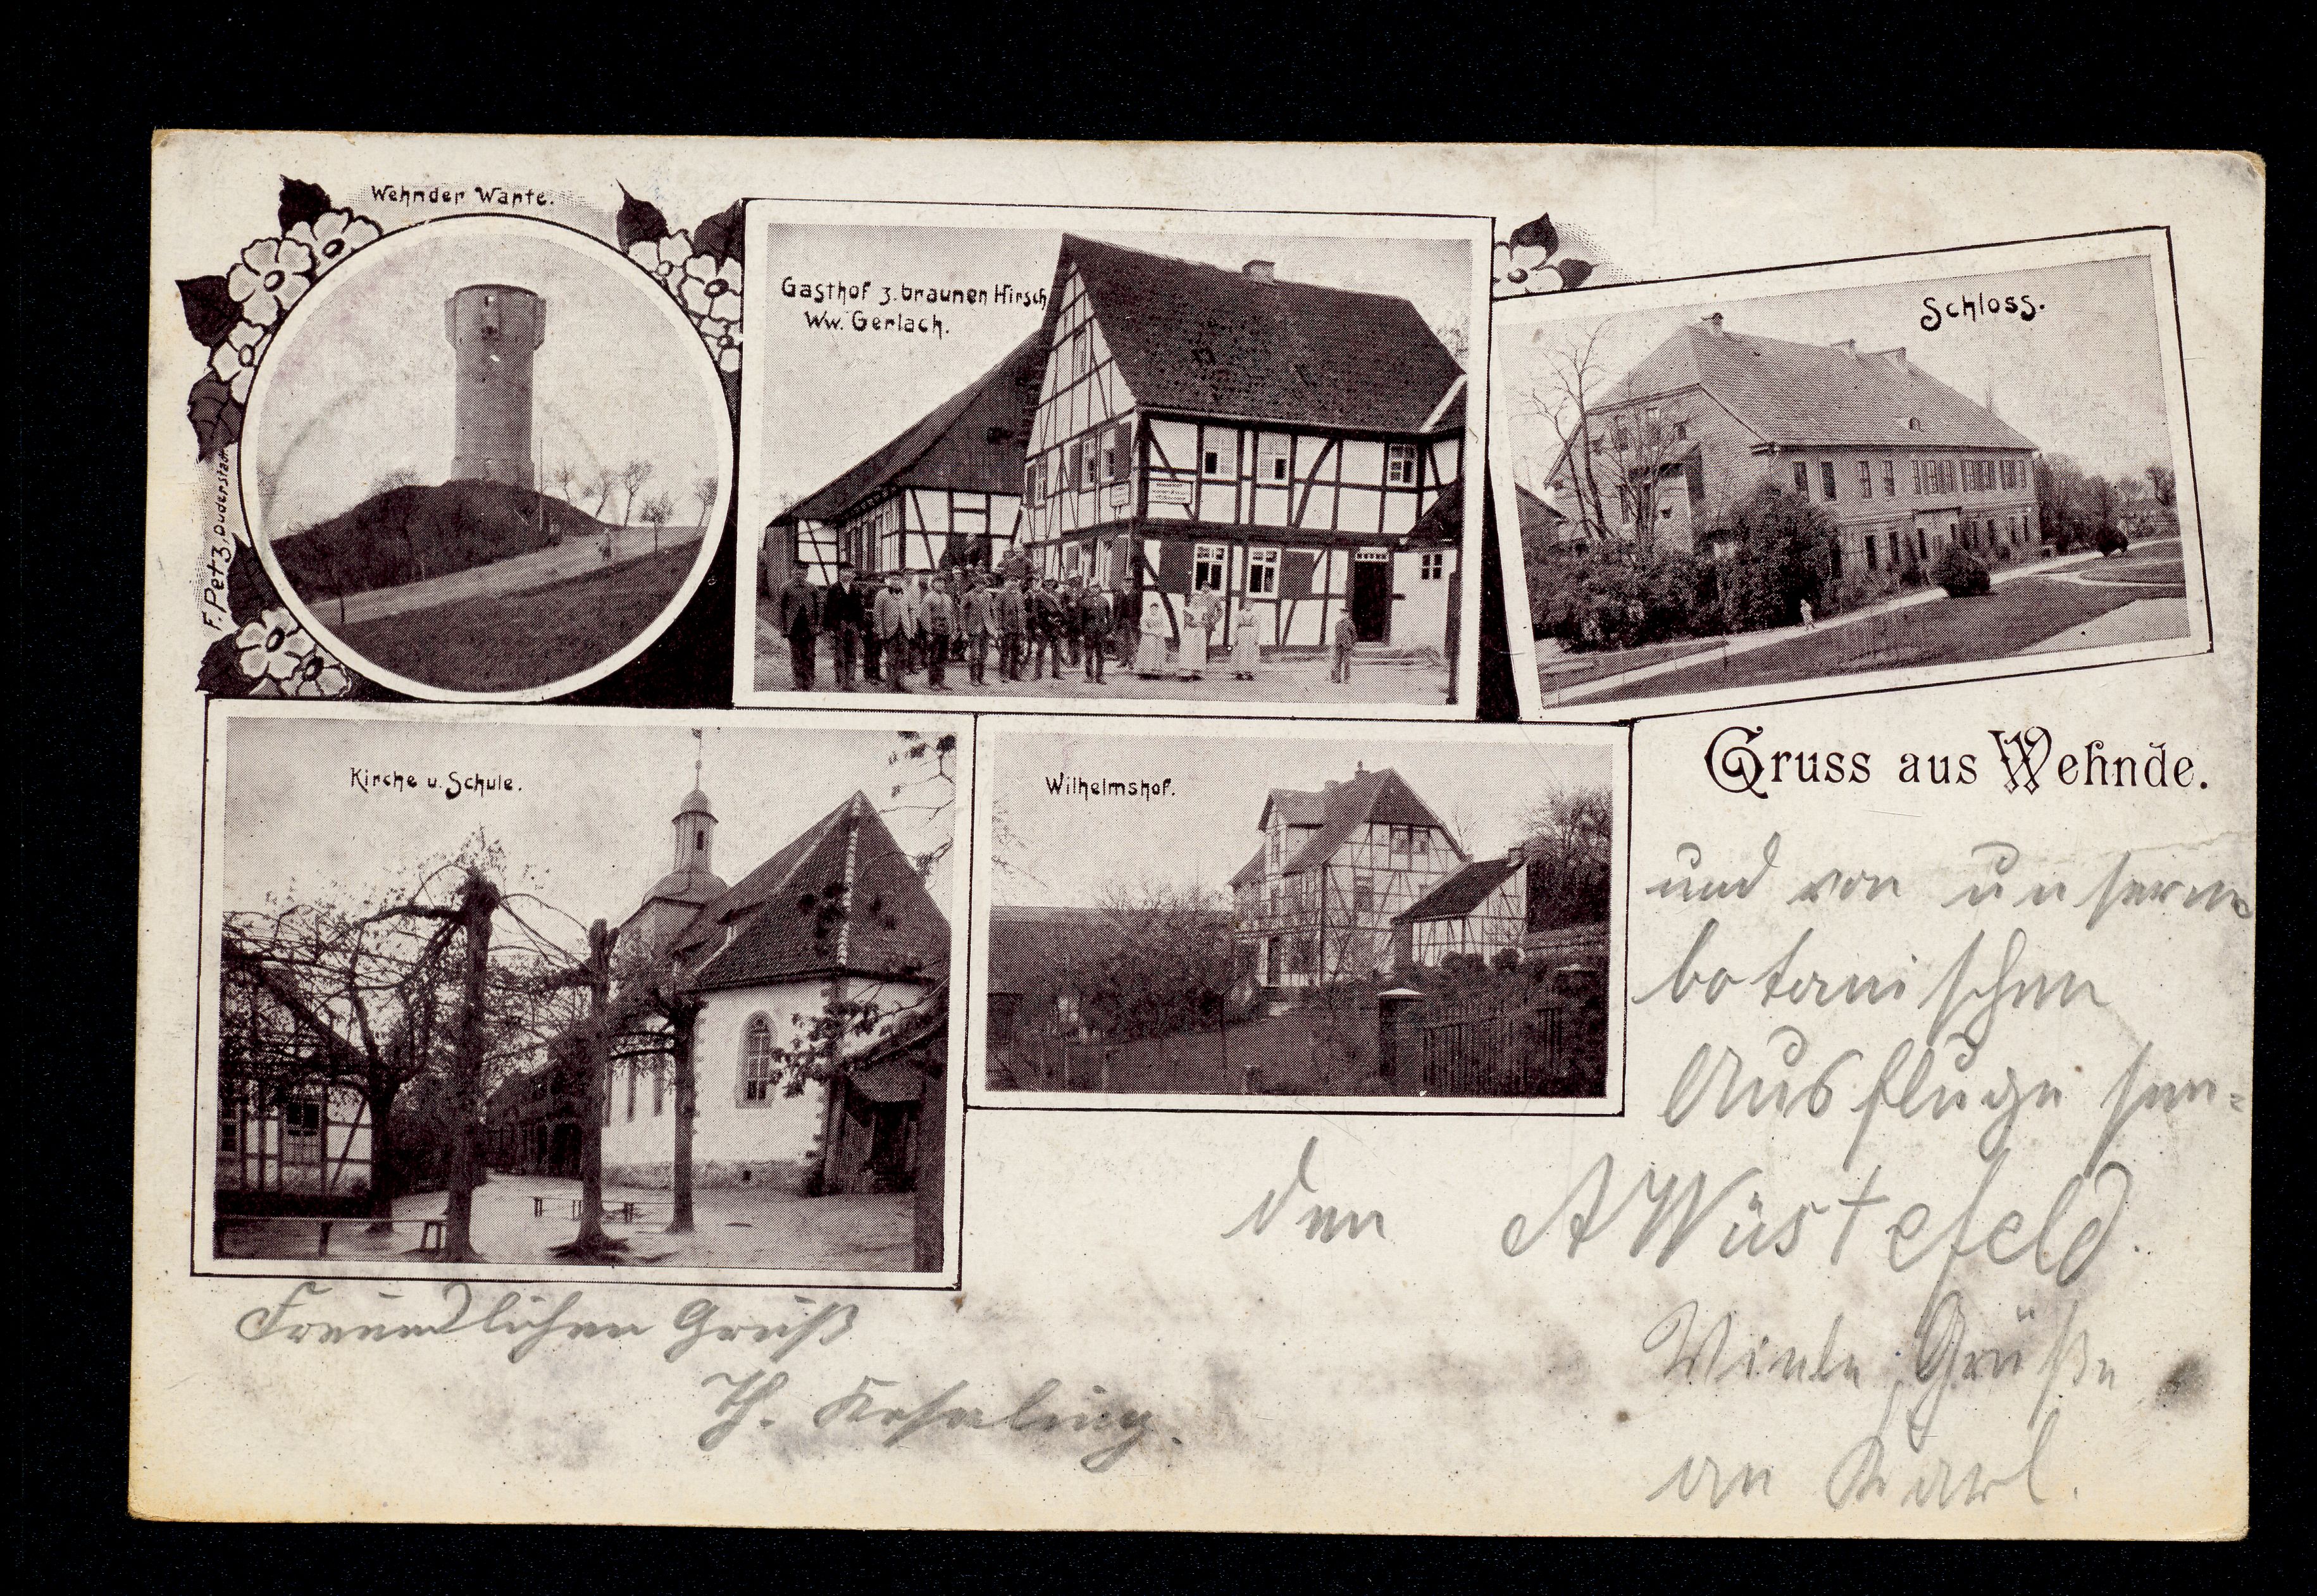 Wehnder Warte.
Gasthof z. braunen Hirsch
Ww. Gerlach.
Schloss.
F. Petz, Duderstadt
Kirche u. Schule.
Wilhelmshof.
Gruss aus Wehnde.
und von unserm
botanischen
Ausfluge sen-
den A Wüstefeld.
Freundlichen Gruß
Th.
Viele Grüße
an Karl.